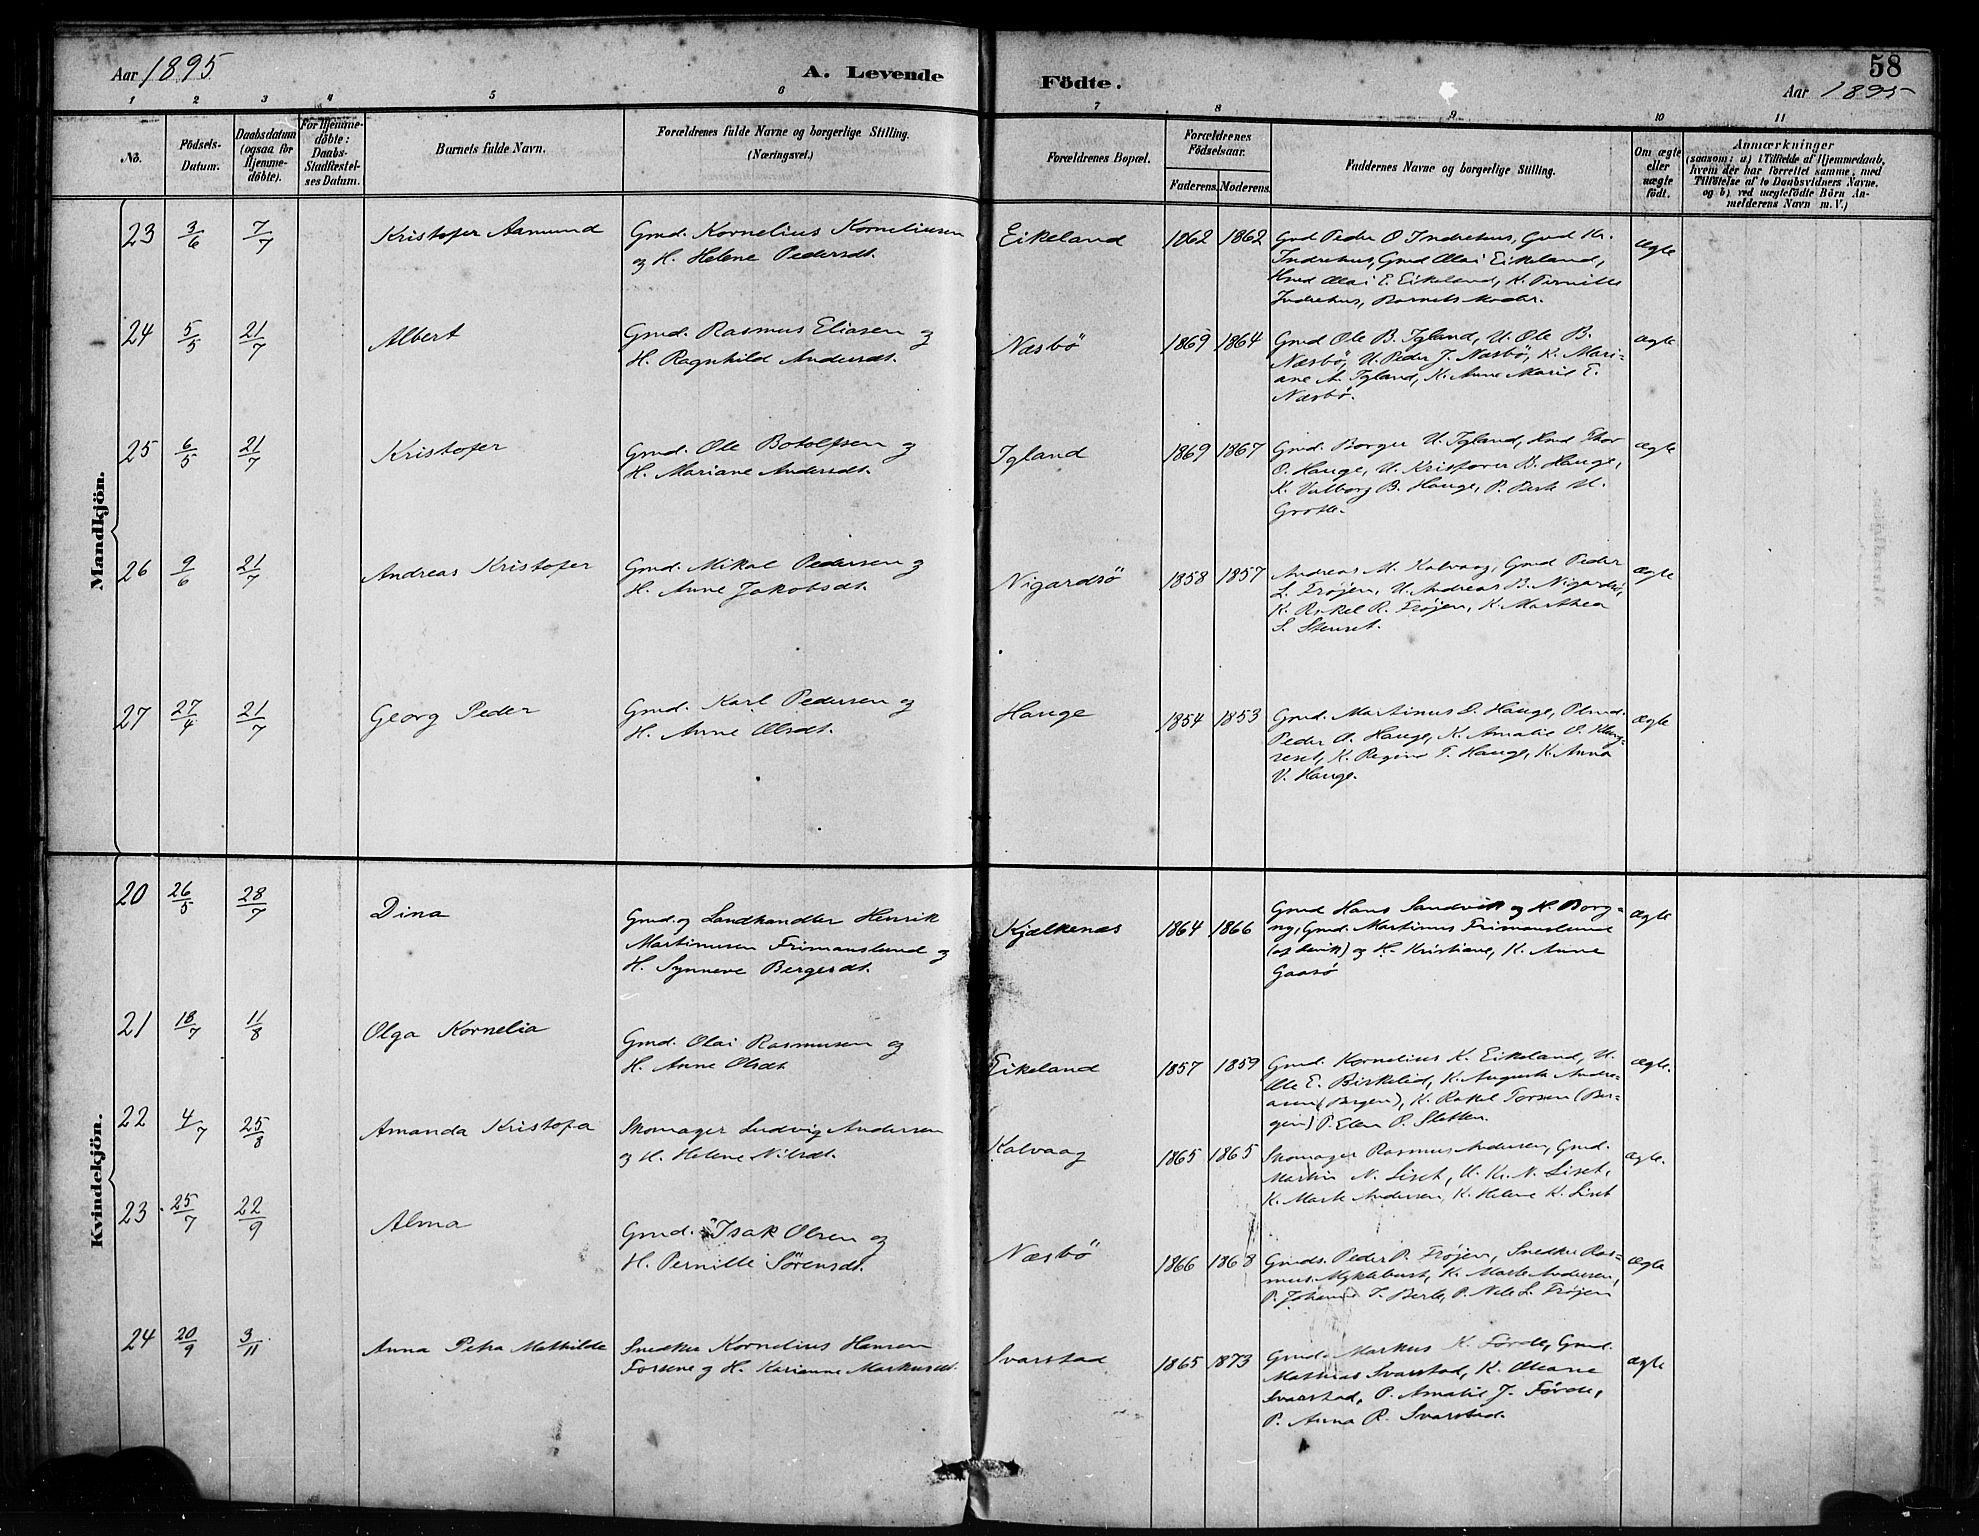 Aar 1895
A. Levende
Födte.
58
Aar 1895
1 2 3 4 5 6 7 8 9 10 11
No.
Födsels-
Datum.
Daabsdatum
(ogsaa for
Hjemme-
döbte).
For Hjemme-
döbte:
Daabs-
Stadfæstel-
ses Datum.
Barnets fulde Navn.
Forældrenes fulde Navne og borgerlige Stilling.
(Næringsvei.)
Forældrenes Bopæl.
Forældrenes
Födselsaar.
Faderens. Moderens.
Faddernes Navne og borgerlige Stilling.
Om ægte
eller
uægte
födt.
Anmærkninger
(saasom: a) i Tilfælde af Hjemmedaab,
hvem der har forrettet samme, med
Tilföielse af to Daabsvidners Navne,
og b) ved uægtefödte Börn An-
melderens Navn m. V.)
Mandkjön.
23 3/6 7/7 Kristofer Aamund
Gmd. Kornelius Korneliusen
og H. Helene Pedersdt.
Eikeland 1862 1862
Gmd Peder O Indrehus, Gmd Kr.
Indrehus, Gmd Olai Eikeland,
Olai E. Eikeland, K. Pernille
Indrehus, Barnets Moder.
ægte
24 5/5 21/7 Albert
Gmd. Rasmus Eliasen og
H. Ragnhild Andersdt.
Næsbö 1869 1864
Gmd Ole B. Igland, U. Ole B.
Næsbö, U. Peder J. Næsbö, K. Mari-
ane A. Igland, K. Anne Marie E.
Næsbö.
ægte
25 6/5 21/7 Kristofer
Gmd. Ole Botolfsen og
H. Mariane Andersdt.
Igland 1869 1867
Gmd. Borger U. Igland, Thor
O. Hauge, U. Kristofer B. Hauge,
K. Valborg B. Hauge, P. U.
Grotle.
ægte
26 9/6 21/7 Andreas Kristofer
Gmd. Mikal Pedersen og
H. Anne Jakobsdt.
Nigardsö 1858 1857
Andreas M. Kalvaag, Gmd Peder
L. Frøjen, U. Andreas B. Nigardsö,
K. Rakel R. Frøjen, K. Marthea
S. Stenset.
ægte
27 27/4 21/7 Georg Peder
Gmd. Karl Pedersen og
H. Anne Olsdt.
Hauge 1854 1853
Gmd. Martinus D. Hauge,
Peder A. Hauge, K. Amalie O.
K. Regine T. Hauge, K. Anna
V. Hauge.
ægte
Kvindekjön.
20 26/5 28/7 Dina
Gmd. og Landhandler Henrik
Martinusen Frimanslund og
H. Synneve Bergersdt.
Kjelkenæs 1864 1866
Gmd Hans Sandvik og H. Borg-
ny, Gmd. Martinus Frimanslund
og H. Kristiane, K. Anne
Gaasö
ægte
21 18/7 11/8 Olga Kornelia
Gmd. Olai Rasmusen og
H. Anne Olsdt.
Eikeland 1857 1859
Gmd. Kornelius K. Eikeland, U.
Ole E. Birkelid, K. Augusta Andre-
asen (Bergen), K. Rakel Torsen (Ber-
gen) P. Elen P. Sletten.
ægte.
22 4/7 25/8 Amanda Kristofa
Skomager Ludvig Andersen
og H. Helene Nilsdt.
Kalvaag 1865 1865
Skomager Rasmus Andersen, Gmd.
Martin N. Liset, U. Kr. N. Liset,
K. Marte Andersen, K. Helene K. Liset
ægte.
23 25/7 22/9 Alma
Gmd. Isak Olsen og
H. Pernille Sörensdt.
Næsbö 1866 1868
Gmds. Peder P. Frøjen, Snedker Ras-
mus Myklebust, K. Marte Andersen,
P. Johanne T. Berle, P. Nele L. Frøjen
ægte
24 20/9 3/11 Anna Petra Mathilde
Snedker Kornelius Hansen
og H. Karianne Markusdt.
Svarstad 1865 1873
Gmd. Markus K. Førde, Gmd.
Mathias Svarstad, K. Oleane
Svarstad, P. Amalie J. Førde,
P. Anna R. Svarstad.
ægte